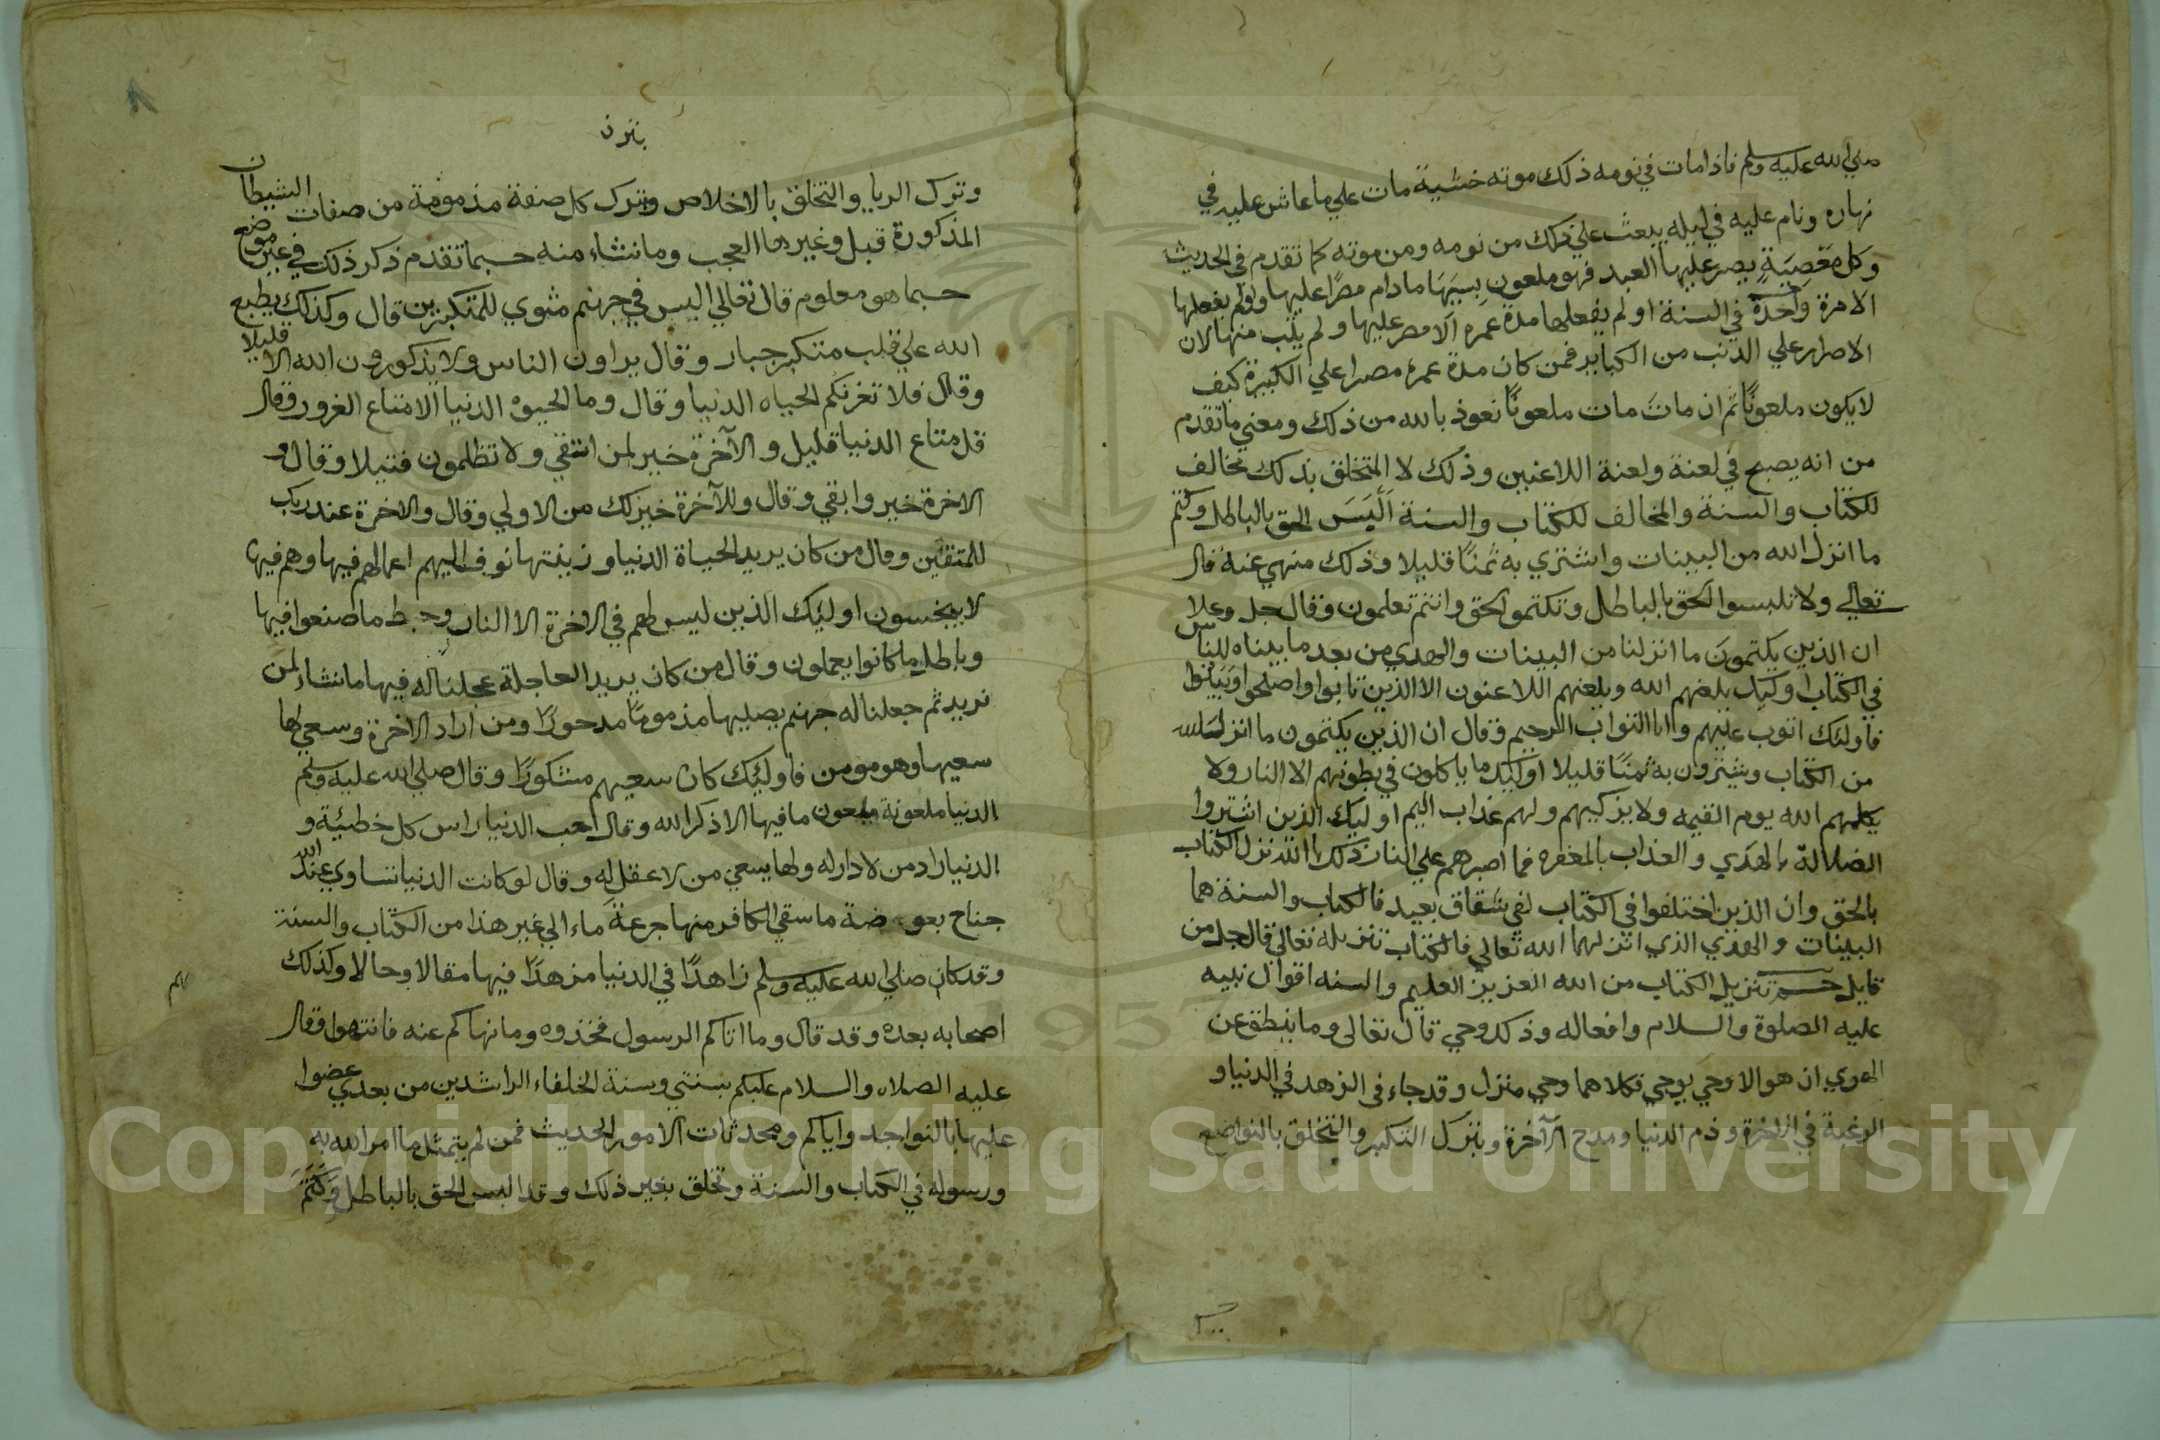 صلي الله عليه وسلم فاذا مات في نومه ذلك موته خشية مات علي ما عاش عليه في
نهاره ونام عليه في ليله يبعث علي ذلك من نومه ومن موته كما تقدم في الحديث
وكل مَعْصِيَةٍ يصر عليها العبد فهو ملعون بسببها ما دام مصرًا عليها ولو لم يفعلها
الا مرة واحدة في السنة او لم يفعلها مدة عمره الا مصر عليها ولم يتب منها لان
الاصرار علي الذنب من الكباير فمن كان مدة عمره مصرا علي الكبيرة كيف
لا يكون ملعونًا ثم ان مات مات ملعونًا نعوذ بالله من ذلك ومعني ما تقدم
من انه يصبح في لعنة ولعنة اللاعنين وذلك لا المتخلق بذلك مخالف
للكتاب والسنة والمخالف للكتاب والسنة اَلْبَسَ الحق بالباطل وكتم
ما انزل الله من البينات واشتري به ثمنًا قليلا وذلك منهي عنه قال
تعالي ولا تلبسوا الحق بالباطل وتكتموا الحق وانتم تعلمون وقال جل وعلا
ان الذين يكتمون ما انزلنا من البينات والهدي من بعد ما بيناه للناس
في الكتاب اوليك يلعنهم الله ويلعنهم اللاعنون الا الذين تابوا واصلحوا وبَيَّنُوا
فاولئك اتوب عليهم وانا التواب الرحيم وقال ان الذين يكتمون ما انزل الله
من الكتاب ويشترون به ثمنًا قليلا اوليك ما ياكلون في بطونهم الا النار ولا
يكلمهم الله يوم القيمه ولا يزكيهم ولهم عذاب اليم اوليك الذين اشتروا
الضلالة بالهدي والعذاب بالمغفره فما اصبرهم علي النار ذلك بان الله نزل الكتاب
بالحق وان الذين اختلفوا في الكتاب لفي شقاق بعيد فالكتاب والسنة هما
البينات والهدي الذي انزلهما الله تعالي فالكتاب تنزيله تعالي قال جل من
قايل حم تنزيل الكتاب من الله العزيز العليم والسنه اقوال نبيه
عليه الصلوة والسلام وافعاله وذلك وحي قال تعالى وما ينطق عن
الهوي ان هو الا وحي يوحي فكلاهما وحي منزل وقد جاء في الزهد في الدنيا و
الرغبة في الاخرة وذم الدنيا ومدح الآخرة وبترك التكبر والتخلق بالتواضع
وترك الريا والتخلق بالاخلاص وترك كل صفة مذمومة من صفات الشيطان
المذكورة قبل وغيرها العجب وما نشاء منه حسبما تقدم ذكر ذلك في غير موضع
حسبما هو معلوم قال تعالي اليس في جهنم مثوي للمتكبرين قال وكذلك يطبع
الله علي قلب متكبر جبار وقال يراون الناس ولا يذكرون الله الا قليلا
وقال فلا تغرنكم الحياه الدنيا وقال وما الحيوة الدنيا الا متاع الغرور وقال
قل متاع الدنيا قليل والآخرة خير لمن اتقي ولا تظلمون فتيلا وقال و
الاخرة خير وابقي وقال وللآخرة خير لك من الاولي وقال والاخرة عند ربك
للمتقين وقال من كان يريد الحياة الدنيا وزينتها نوف اليهم اعمالهم فيها وهم فيها
لا يبخسون اوليك الذين ليس لهم في الاخرة الا النار وحبط ما صنعوا فيها
وباطل ما كانوا يعملون وقال من كان يريد العاجلة عجلنا له فيها ما نشاء لمن
نريد ثم جعلنا له جهنم يصليها مذمومًا مدحورًا ومن اراد الاخرة وسعي لها
سعيها وهو مومن فاوليك كان سعيهم مشكورًا وقال صلي الله عليه وسلم
الدنيا ملعونة ملعون ما فيها الا ذكر الله وقال حب الدنيا راس كل خطيئة و
الدنيا دار من لا دار له ولها يسعي من لا عقل له وقال لو كانت الدنيا تساوي عند الله
جناح بعوضة ما سقي الكافر منها جرعة ماء الي غير هذا من الكتاب والسنة
وقد كان صلي الله عليه وسلم زاهدًا في الدنيا مزهدًا فيها مقالا وحالا وكذلك
اصحابه بعده وقد قال وما اتاكم الرسول فخذوه وما نهاكم عنه فانتهوا وقال
عليه الصلاه والسلام عليكم بسنتي وسنة الخلفاء الراشدين من بعدي عضوا
عليها بالنواجد واياكم ومحدثات الامور الحديث فمن لم يتمثل ما امر الله به
ورسوله في الكتاب والسنة وتخلق بغير ذلك وقد البس الحق بالباطل وَكَتَمَ
Copyright © King Saud University